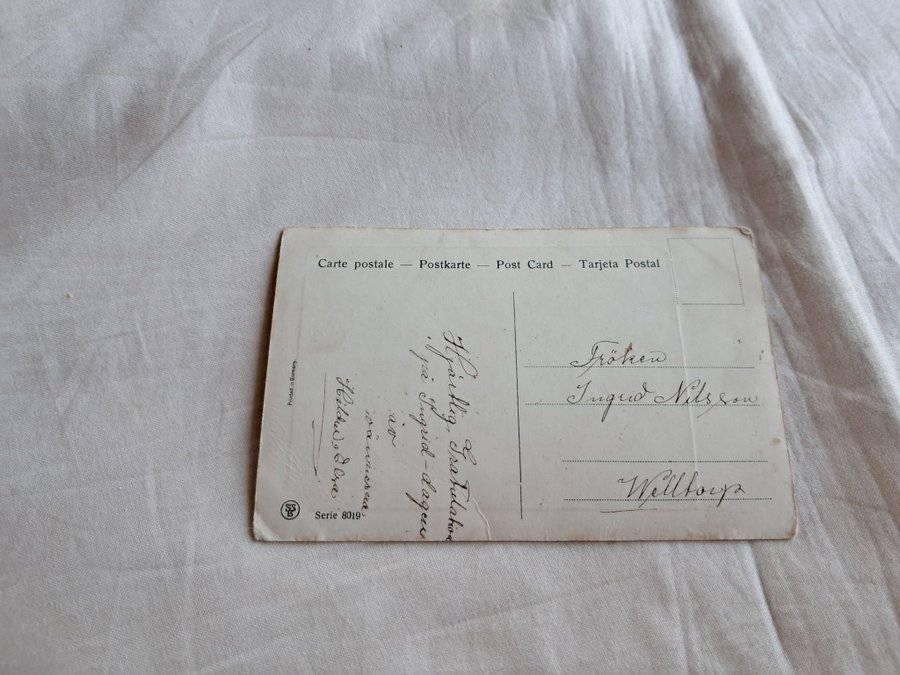 Carte postale — Postkarte — Post Card — Tarjeta Postal
Hjärtlig Gratulation
på Ingrid-dagen
av
vännerna
Fröken
Ingrid Nilsson
Welltorp
Printed in Germany
Serie 8019